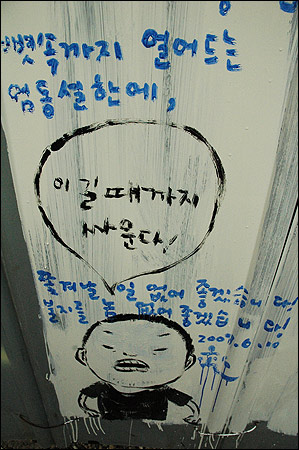 뼛속까지 얼어드는
엄동설한에,
이길때까지
싸운다!
쫓겨날 일 없어 좋겠습니다!
불지를 놈 없어 좋겠습니다!
2009.6.10